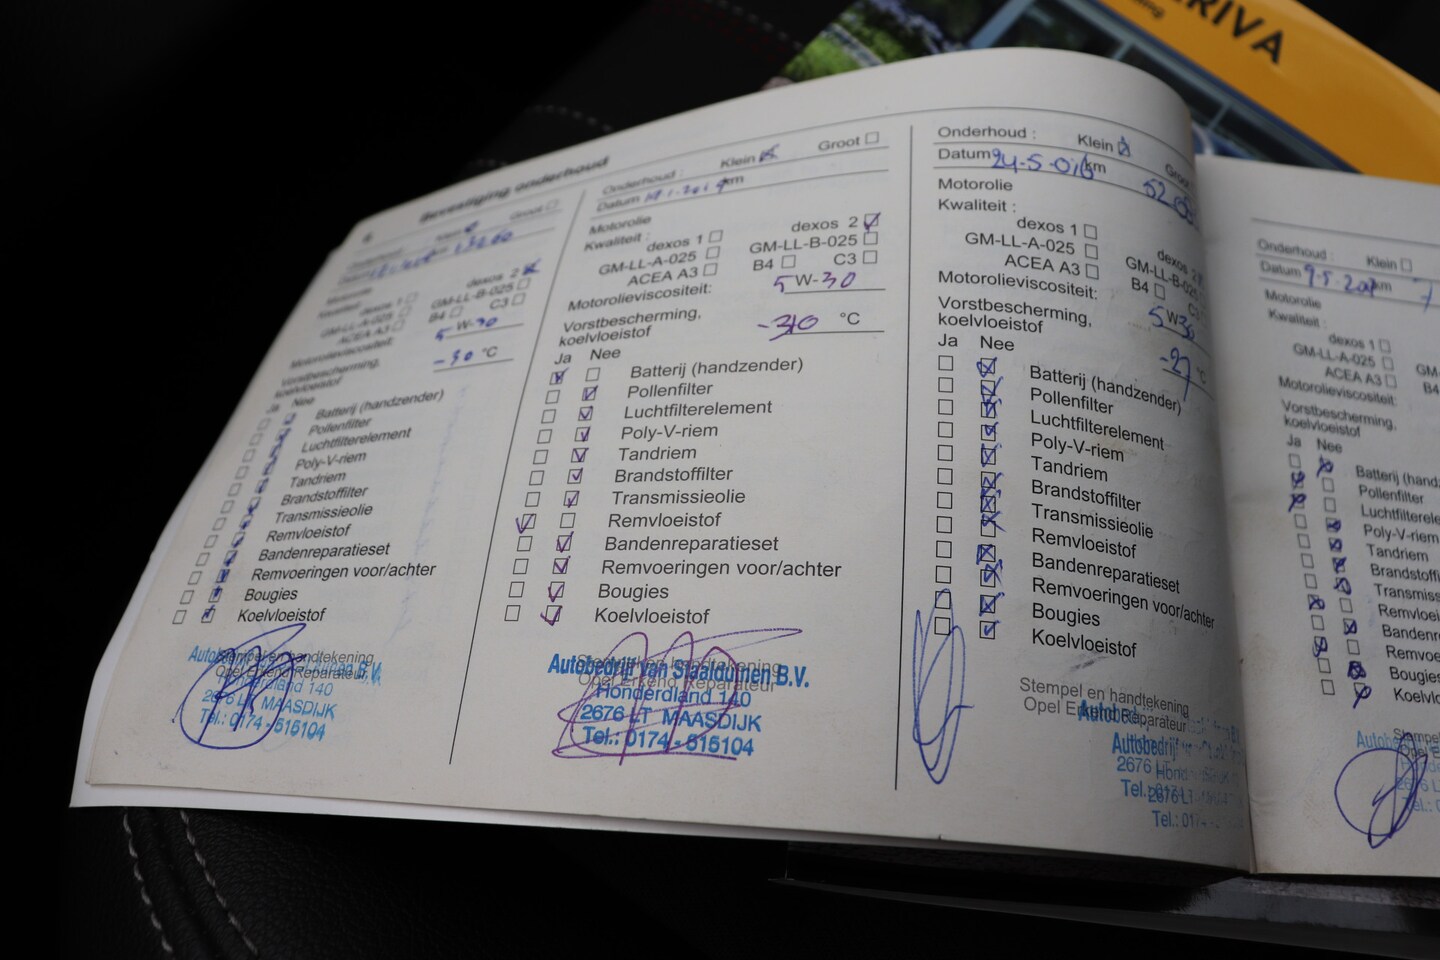 ERIVA
6 Bevestiging onderhoud
Groot
dexos 2
dexos 1
GM-LL-B-025
GM-LL-A-025
B4 C3
ACEA A3
Motorolieviscositeit:
5 W-30
Vorstbescherming,
koelvloeistof
-30 °C
Ja Nee
Batterij (handzender)
Pollenfilter
Luchtfilterelement
Poly-V-riem
Tandriem
Brandstoffilter
Transmissieolie
Remvloeistof
Bandenreparatieset
Remvoeringen voor/achter
Bougies
Koelvloeistof
Stempel en handtekening
Opel Erkend Reparateur
Honderdland 140
2676 LT MAASDIJK
Tel.: 0174 - 515104
Onderhoud : Klein Groot
Datum km
Motorolie
Kwaliteit :
dexos 1 dexos 2
GM-LL-A-025 GM-LL-B-025
ACEA A3 B4 C3
Motorolieviscositeit: 5 W-30
Vorstbescherming,
koelvloeistof °C
Ja Nee
Batterij (handzender)
Pollenfilter
Luchtfilterelement
Poly-V-riem
Tandriem
Brandstoffilter
Transmissieolie
Remvloeistof
Bandenreparatieset
Remvoeringen voor/achter
Bougies
Koelvloeistof
Stempel en handtekening
Opel Erkend Reparateur
Autobedrijf van Staalduinen B.V.
Honderdland 140
2676 LT MAASDIJK
Tel.: 0174 - 515104
Onderhoud : Klein Groot
Datum km
Motorolie
Kwaliteit :
dexos 1 dexos 2
GM-LL-A-025 GM-LL-B-025
ACEA A3 B4
Motorolieviscositeit:
5 W 30
Vorstbescherming,
koelvloeistof
-27 °C
Ja Nee
Batterij (handzender)
Pollenfilter
Luchtfilterelement
Poly-V-riem
Tandriem
Brandstoffilter
Transmissieolie
Remvloeistof
Bandenreparatieset
Remvoeringen voor/achter
Bougies
Koelvloeistof
Stempel en handtekening
Opel Erkend Reparateur
Autobedrijf
2676 LT
Tel.:
Onderhoud : Klein
Datum km
Motorolie
Kwaliteit :
dexos 1
GM-LL-A-025 GM-
ACEA A3 B4
Motorolieviscositeit:
Vorstbescherming,
koelvloeistof
Ja Nee
Batterij (handz
Pollenfilter
Luchtfilterele
Poly-V-riem
Tandriem
Brandstoffi
Transmiss
Remvloei
Bandenr
Remvoe
Bougies
Koelvlo